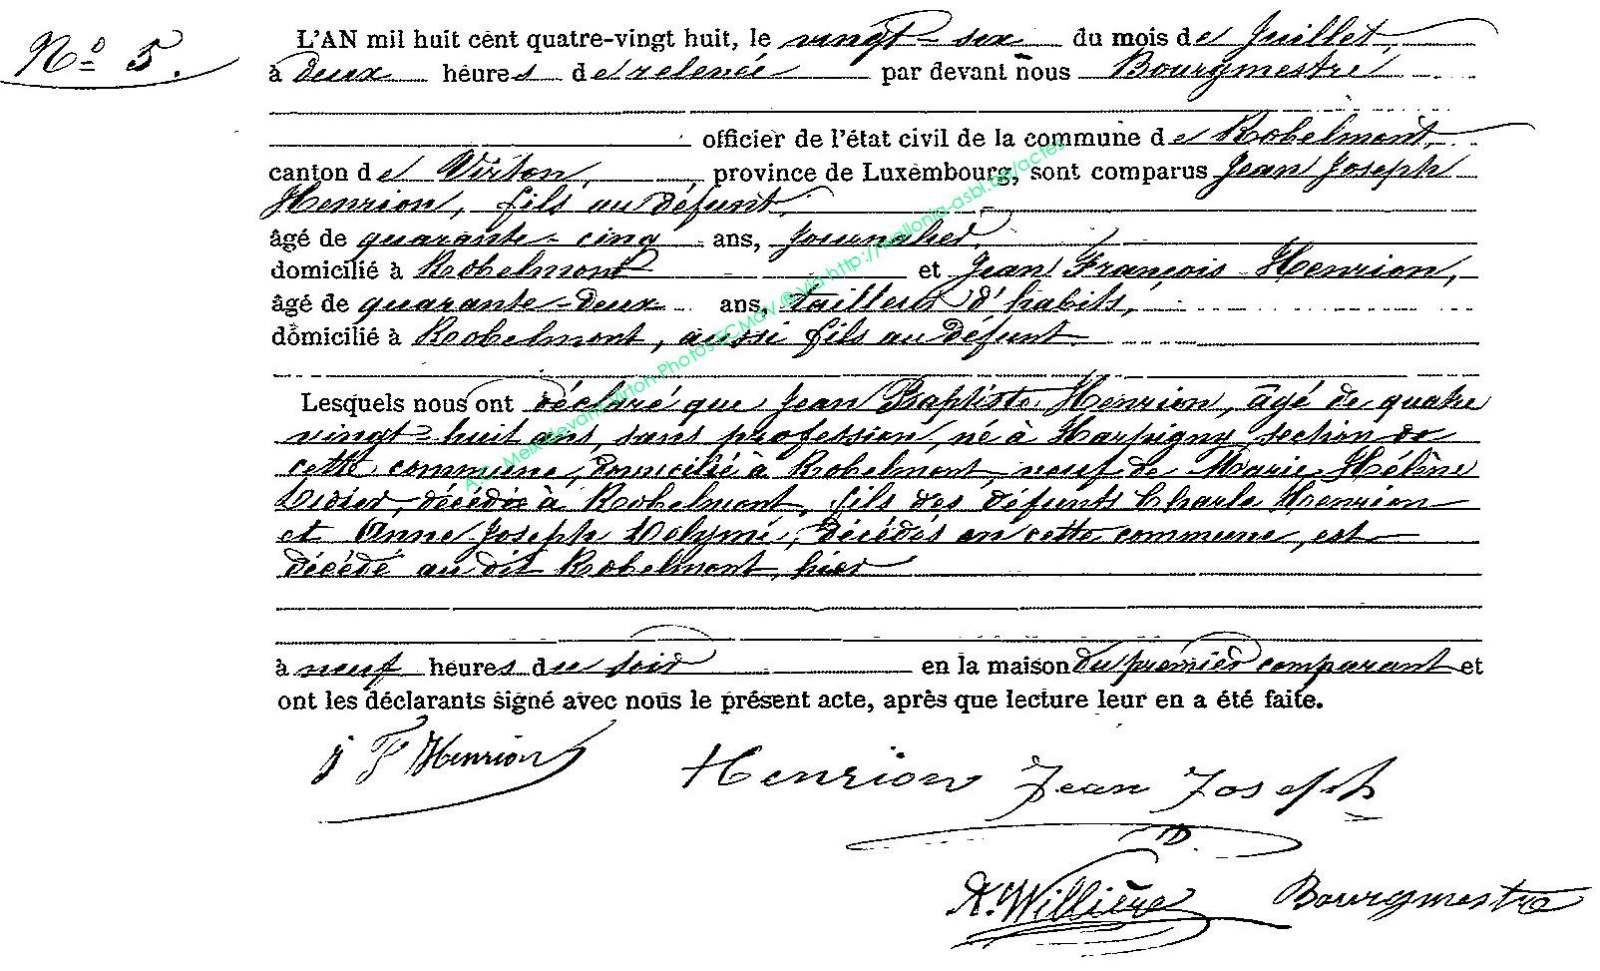 N° 5.
L'AN mil huit cent quatre-vingt huit, le vingt-six du mois de Juillet,
à deux heures de relevée par devant nous Bourgmestre
officier de l'état civil de la commune de Robelmont,
canton de Virton, province de Luxembourg, sont comparus Jean Joseph
Henrion, fils au défunt,
âgé de quarante-cinq ans, journalier,
domicilié à Robelmont et Jean François Henrion,
âgé de quarante-deux ans, tailleur d'habits,
domicilié à Robelmont, aussi fils au défunt.
Lesquels nous ont déclaré que Jean Baptiste Henrion, âgé de quatre
vingt-huit ans, sans profession, né à Harpigny section de
cette commune, domicilié à Robelmont, veuf de Marie Hélène
Didier, décédée à Robelmont, fils des défunts Charle Henrion
et Anne Joseph, décédés en cette commune, est
décédé au dit Robelmont, hier
à neuf heures du soir en la maison du premier comparant et
ont les déclarants signé avec nous le présent acte, après que lecture leur en a été faite.
j F Henrion Henrion Jean Joseph
A. Willière Bourgmestre